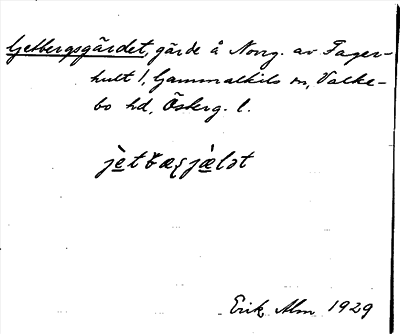 Getbergsgärdet, gärde å Norrg. av Fager-
hult 1, Gammalkils sn, Valke-
bo hd, Österg. l.
jètbærjæ̀lət
Erik Alm 1929